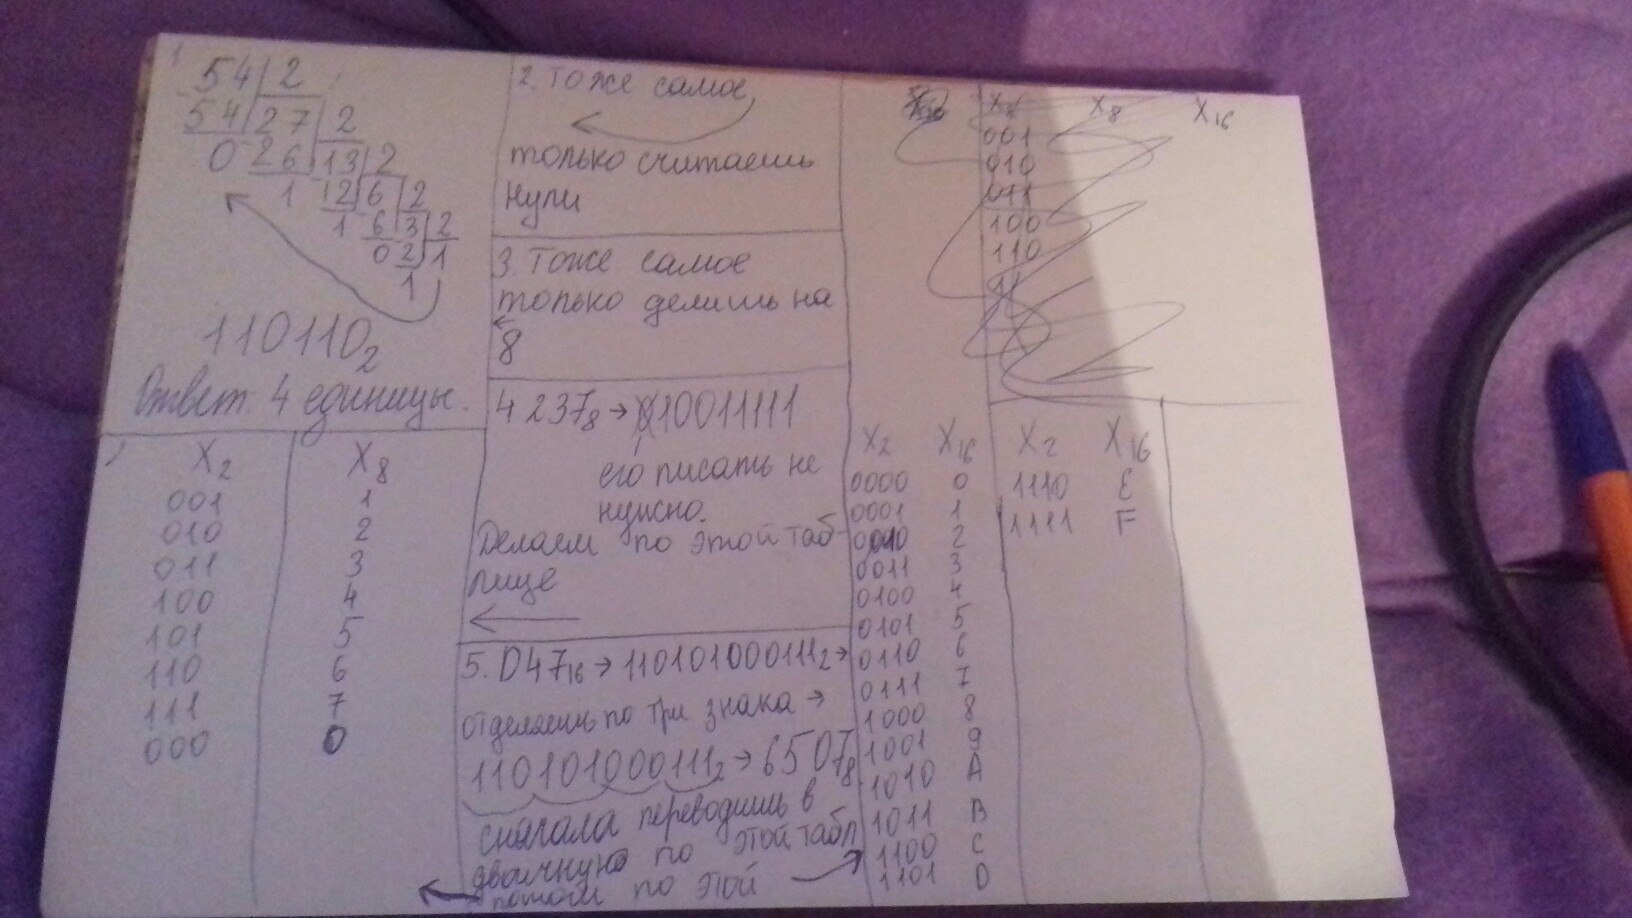 1
54 2
54 27 2
0 26 13 2
1 12 6 2
1 6 3 2
0 2 1
1
110110₂
Ответ. 4 единицы.
X₂ X₈
001 1
010 2
011 3
100 4
101 5
110 6
111 7
000 0
2. Тоже самое
только считаешь
нули
3. Тоже самое
только делишь на
8
4 237₈ → 010011111
его писать не
нужно.
Делаем по этой таб-
лице
5. D47₁₆ → 110101000111₂ →
отделяешь по три знака →
110101000111₂ → 6507₈
сначала переводишь в
двоичную по этой табл
потом по этой
X₈ X₁₆
001
010
011
100
110
11
X₂ X₁₆
0000 0
0001 1
0010 2
0011 3
0100 4
0101 5
0110 6
0111 7
1000 8
1001 9
1010 A
1011 B
1100 C
1101 D
X₂ X₁₆
1110 E
1111 F